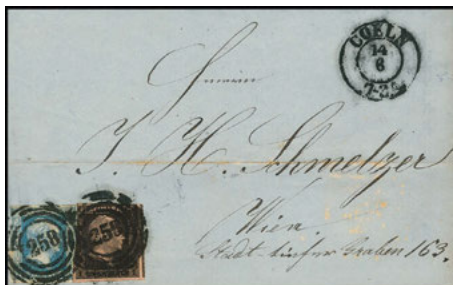 COELN
14
6
Herrn
J. H. Schmelzer
Wien.
Stadt-tiefer Graben 163.
258
258